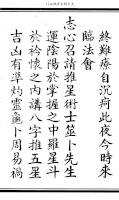 終難療自沉疴此夜今時來
臨法會
志心召請推星術士筮卜先生
運陰陽於掌握之中羅星斗
於衿懷之内講八字推五星
吉凶有準灼靈龜卜周易禍